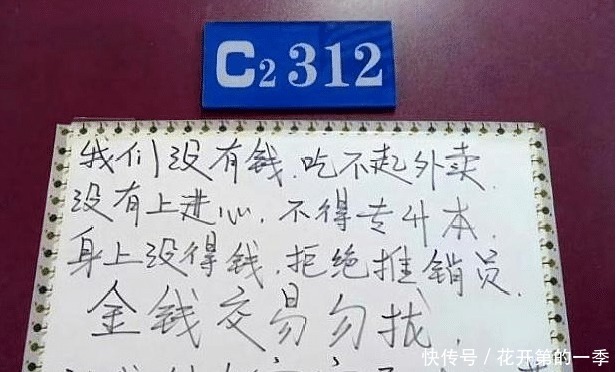 C2312
我们没有钱.吃不起外卖.
没有上进心.不得专升本.
身上没得钱.拒绝推销员.
金钱交易勿扰.
快传号/花开第的一季